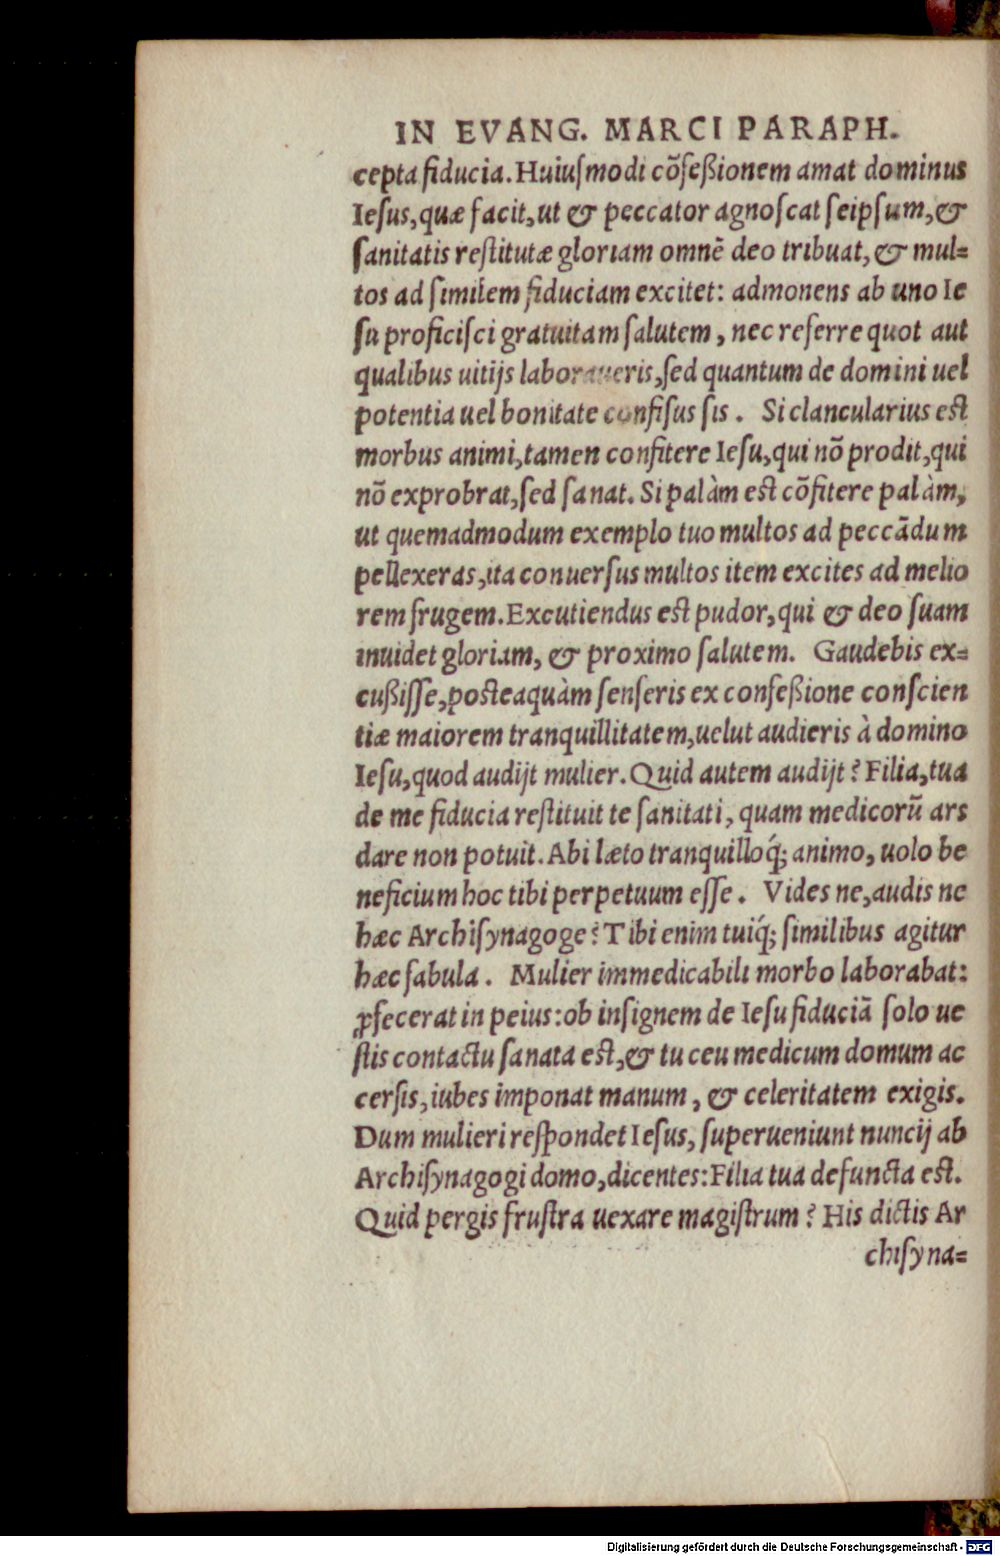 IN EVANG. MARCI PARAPH.
cepta fiducia. Huiuſmodi cõfeßionem amat dominus
Ieſus, quæ facit, ut & peccator agnoſcat ſeipſum, &
ſanitatis reſtitutæ gloriam omnẽ deo tribuat, & mul=
tos ad ſimilem fiduciam excitet: admonens ab uno Ie
ſu proficiſci gratuitam ſalutem, nec referre quot aut
qualibus uitijs laboraueris, ſed quantum de domini uel
potentia uel bonitate confiſus ſis. Si clancularius eſt
morbus animi, tamen confitere Ieſu, qui nõ prodit, qui
nõ exprobrat, ſed ſanat. Si palàm eſt cõfitere palàm,
ut quemadmodum exemplo tuo multos ad peccãdum
pellexeras, ita conuerſus multos item excites ad melio
rem frugem. Excutiendus eſt pudor, qui & deo ſuam
inuidet gloriam, & proximo ſalutem. Gaudebis ex=
cußiſſe, poſteaquàm ſenſeris ex confeßione conſcien
tiæ maiorem tranquillitatem, uelut audieris à domino
Ieſu, quod audijt mulier. Quid autem audijt? Filia, tua
de me fiducia reſtituit te ſanitati, quam medicorũ ars
dare non potuit. Abi læto tranquilloq́; animo, uolo be
neficium hoc tibi perpetuum eſſe. Vides ne, audis ne
hæc Archiſynagoge? Tibi enim tuiq́; ſimilibus agitur
hæc fabula. Mulier immedicabili morbo laborabat:
ꝓfecerat in peius: ob inſignem de Ieſu fiduciã ſolo ue
ſtis contactu ſanata eſt, & tu ceu medicum domum ac
cerſis, iubes imponat manum, & celeritatem exigis.
Dum mulieri reſpondet Ieſus, ſuperueniunt nuncij ab
Archiſynagogi domo, dicentes: Filia tua defuncta eſt.
Quid pergis fruſtra uexare magiſtrum? His dictis Ar
chiſyna=
Digitalisierung gefördert durch die Deutsche Forschungsgemeinschaft - DFG